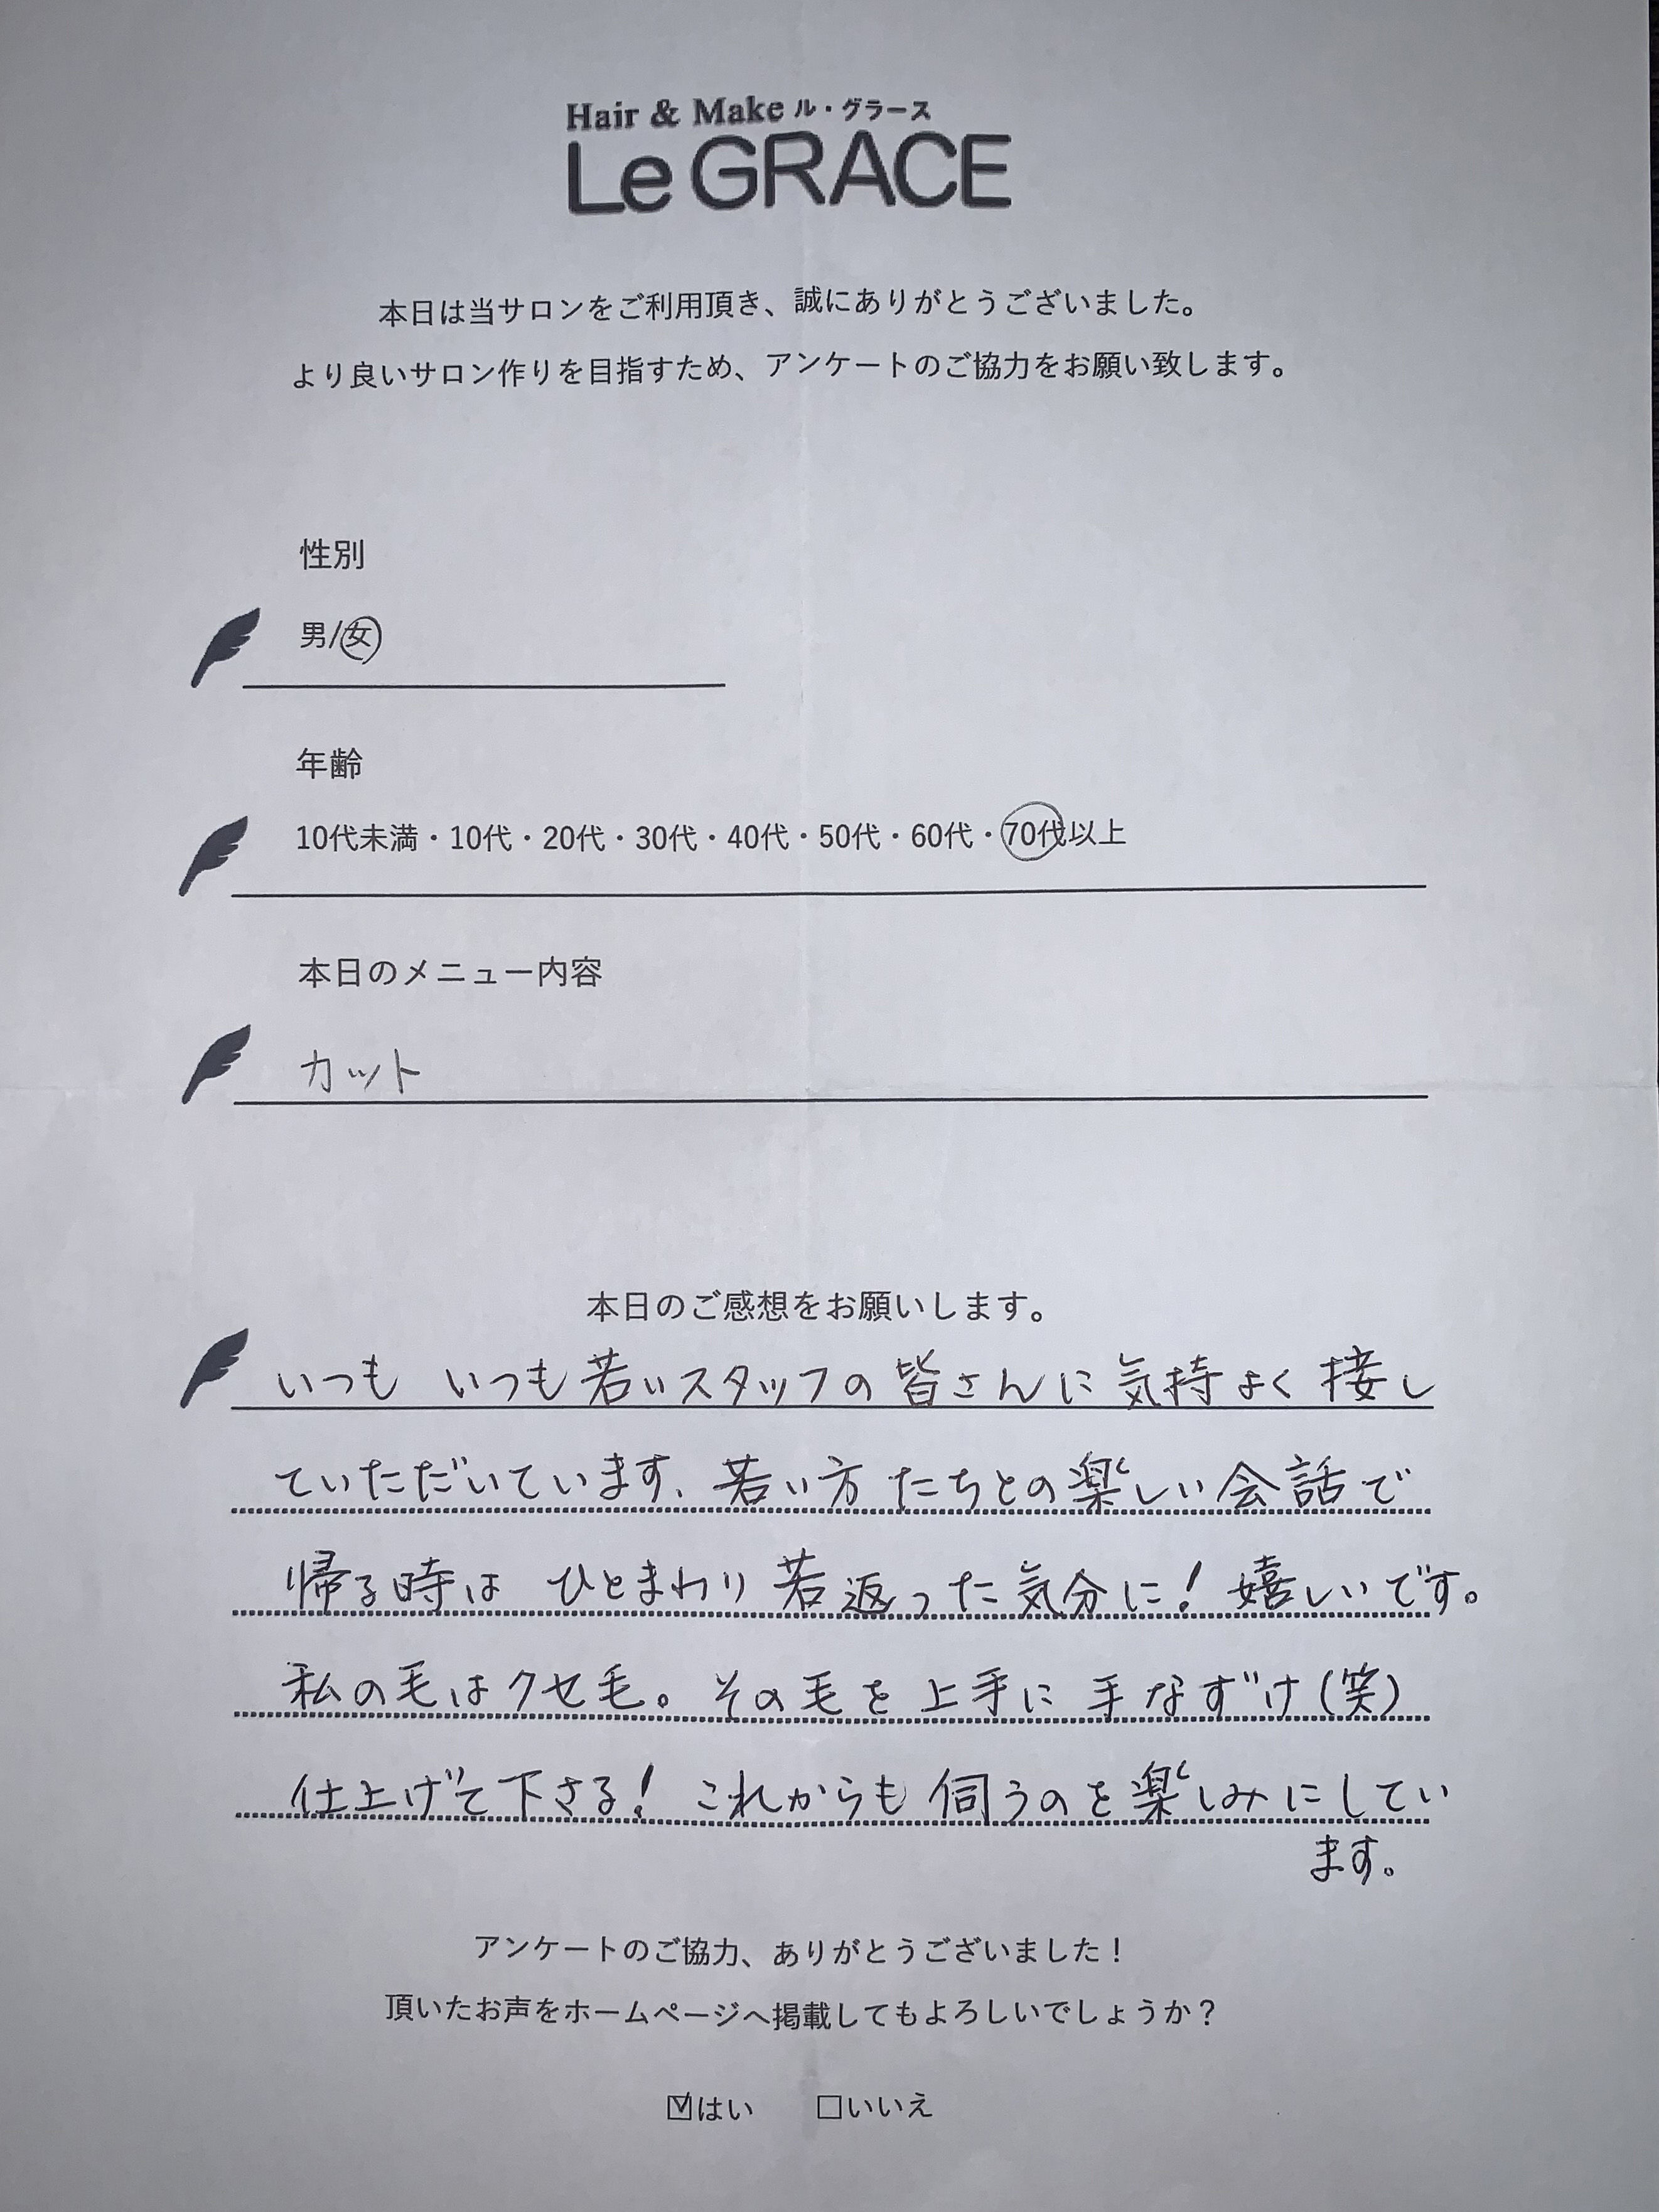 Hair & Make ル・グラース
Le GRACE
本日は当サロンをご利用頂き、誠にありがとうございました。
より良いサロン作りを目指すため、アンケートのご協力をお願い致します。
性別
男/女
年齢
10代未満・10代・20代・30代・40代・50代・60代・70代以上
本日のメニュー内容
カット
本日のご感想をお願いします。
いつも いつも若いスタッフの皆さんに気持よく接し
ていただいています、若い方たちとの楽しい会話で
帰る時は ひとまわり若返った気分に!嬉しいです。
私の毛はクセ毛。その毛を上手に手なずけ(笑)
仕上げて下さる! これからも伺うのを楽しみにしてい
ます。
アンケートのご協力、ありがとうございました!
頂いたお声をホームページへ掲載してもよろしいでしょうか?
☑はい □いいえ